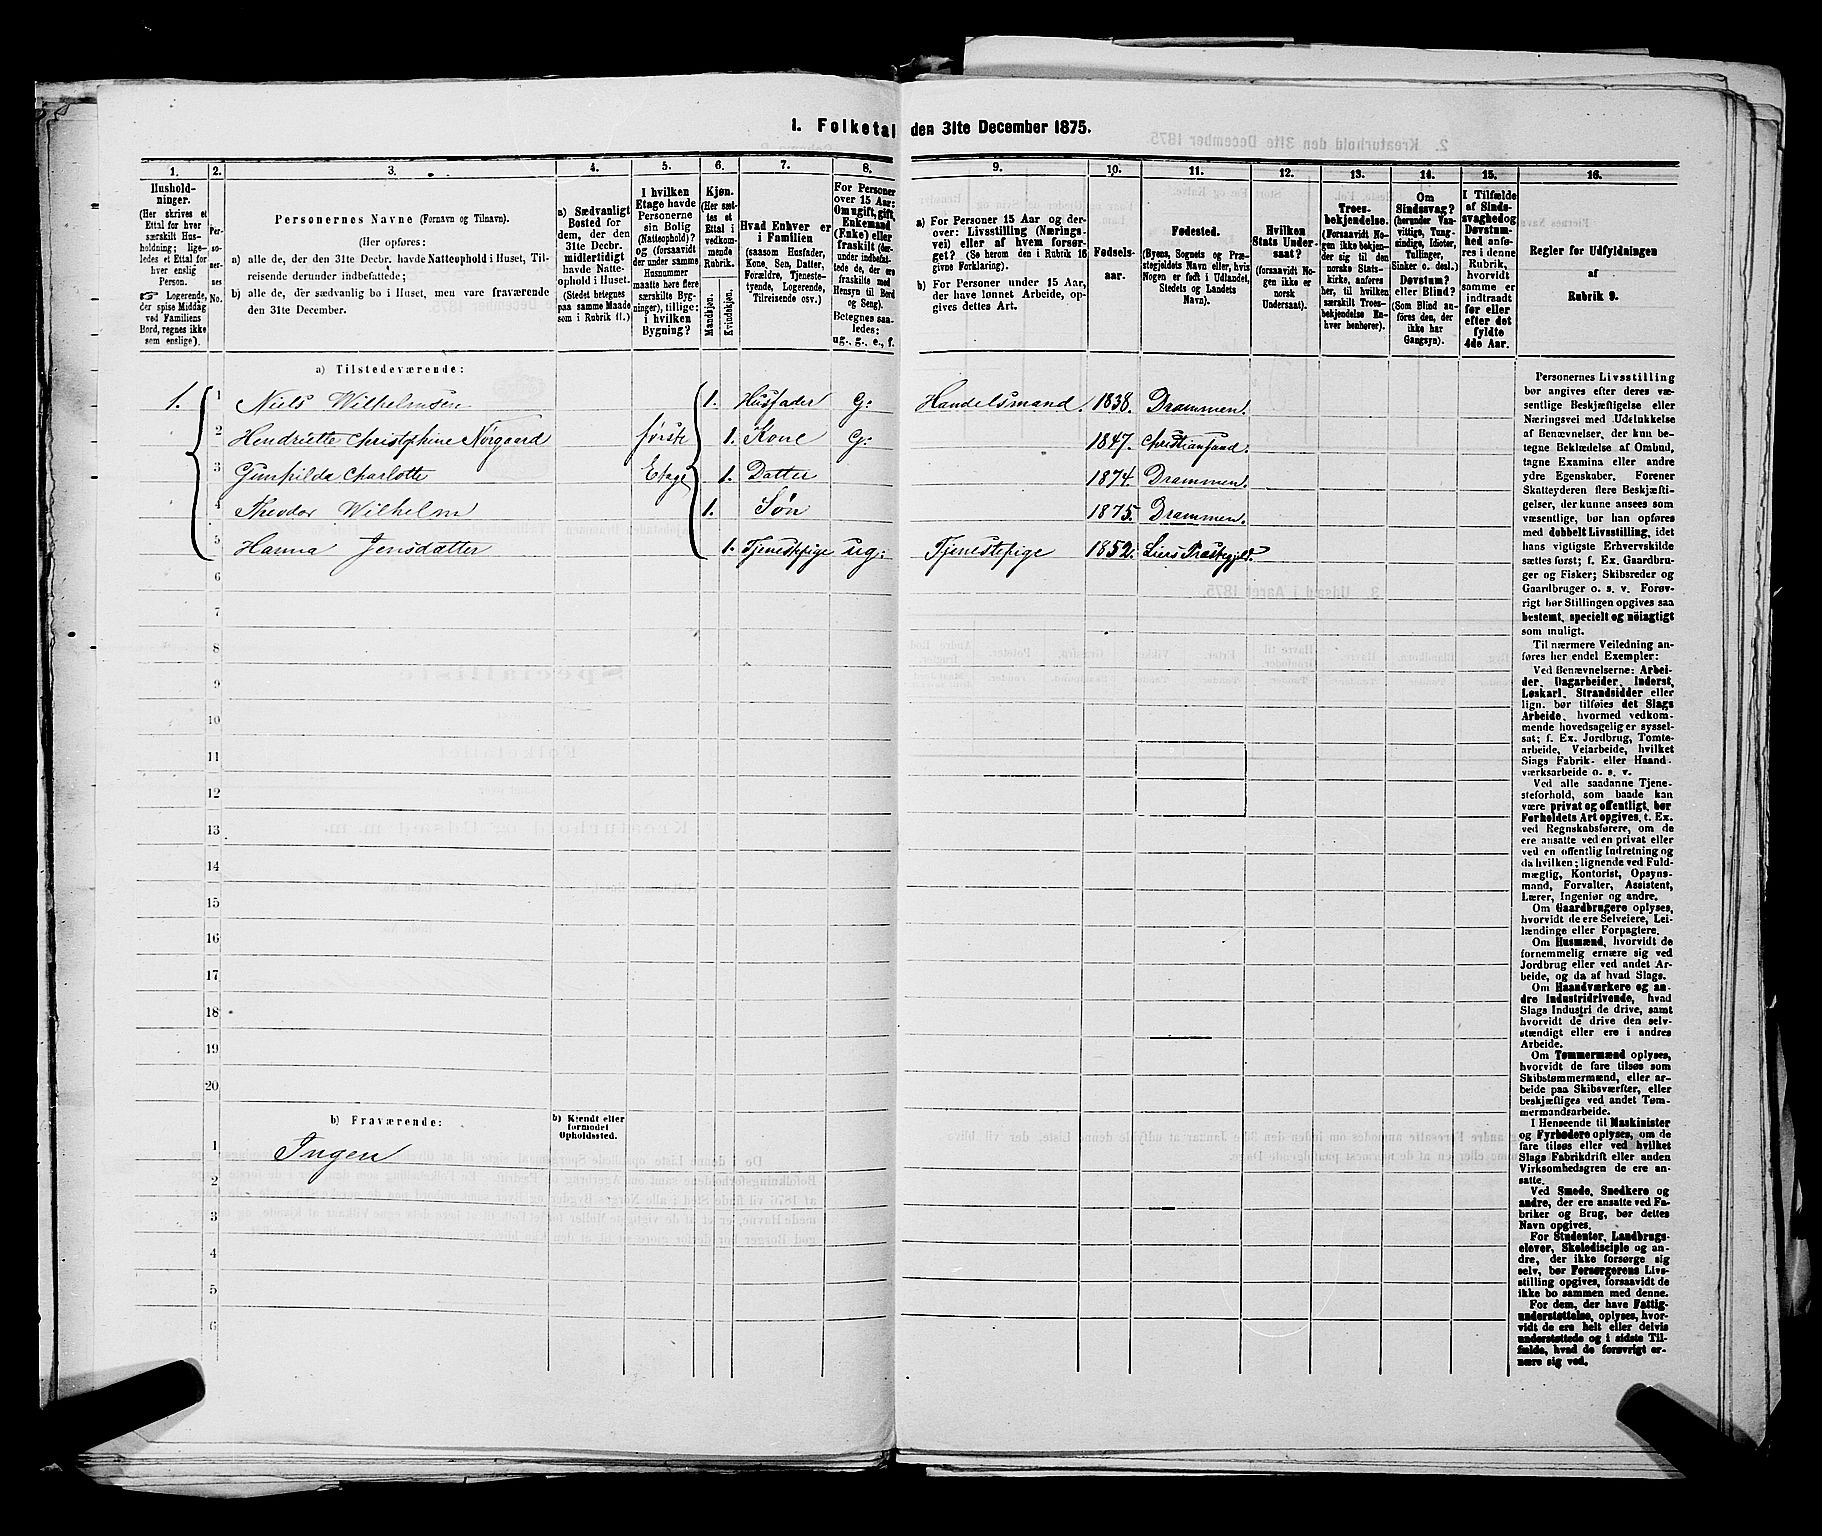 1. Folketal den 31te December 1875.
1. 2. 3. 4. 5. 6. 7. 8. 9. 10. 11. 12. 13. 14. 15. 16.
Hushold-
ninger.
(Her skrives et
Ettal for hver
særskilt Hus-
holdning; lige-
ledes et Ettal for
hver enslig
Person.
☞ Logerende,
der spise Middag
ved Familiens
Bord, regnes ikke
som enslige).
Per-
so-
ner-
nes
No.
Personernes Navne (Fornavn og Tilnavn).
(Her opføres:
a) alle de, der den 31te Decbr. havde Natteophold i Huset, Til-
reisende derunder indbefattede;
b) alle de, der sædvanlig bo i Huset, men vare fraværende
den 31te December.
a) Sædvanligt
Bosted for
dem, der den
31te Decbr.
midlertidigt
havde Natte-
ophold i Huset.
(Stedet betegnes
paa samme Maade
som i Rubrik 11.)
I hvilken
Etage havde
Personerne
sin Bolig
(Natteophold)?
og (forsaavidt
der under samme
Husnummer
maatte høre flere
særskilte Byg-
ninger), tillige:
i hvilken
Bygning?
Kjøn.
(Her sæt-
tes et
Ettal i
vedkom-
mende
Rubrik.
Mandkjøn.
Kvindekjøn.
Hvad Enhver er
i Familien
(saasom Husfader,
Kone, Søn, Datter,
Forældre, Tjeneste-
tyende, Logerende,
Tilreisende osv.)
For Personer
over 15 Aar:
Om ugift, gift,
Enkemand
(Enke) eller
fraskilt (der-
under indbefat-
tede de, der ere
fraskilte med
Hensyn til Bord
og Seng).
Betegnes saa-
ledes:
ug., g., e., f.
a) For Personer 15 Aar og der-
over: Livsstilling (Nærings-
vei) eller af hvem forsør-
get? (Se herom den i Rubrik 16
givne Forklaring).
b) For Personer under 15 Aar,
der have lønnet Arbeide, op-
gives dettes Art.
Fødsels-
aar.
Fødested.
(Byens, Sognets og Præ-
stegjeldets Navn eller, hvis
Nogen er født i Udlandet,
Stedets og Landets
Navn).
Hvilken
Stats Under-
saat?
(forsaavidt No-
gen ikke er
norsk
Undersaat).
Troes-
bekjendelse.
(Forsaavidt No-
gen ikke bekjen-
der sig til den
norske Stats-
kirke, anføres
her, til hvilken
særskilt Troes-
bekjendelse En-
hver henhører).
Om
Sindssvag?
(herunder Van-
vittige, Tung-
sindige, Idioter,
Tullinger,
Sinker o. desl.)
Døvstum?
eller Blind?
(Som Blind an-
føres den, der
ikke har
Gangsyn).
I Tilfælde
af Sinds-
svaghed og
Døvstum-
hed anfø-
res i denne
Rubrik,
hvorvidt
samme er
indtraadt
før eller
efter det
fyldte
4de Aar.
Regler for Udfyldningen
af
Rubrik 9.
a) Tilstedeværende:
1. 1 Niels Wilhelmsen 1. Husfader G: Handelsmand. 1838. Drammen.
2 Hendriette Christphine Nørgaard første 1. Kone G: 1847. Christiansand.
3 Gunhilda Charlotte Etage 1. Datter 1874. Drammen.
4 Theodor Wilhelm 1. Søn 1875. Drammen.
5 Hanna Jensdatter 1. Tjenestepige ug: Tjenestepige 1852. Liers Præstegjeld.
6
7
8
9
10
11
12
13
14
15
16
17
18
19
20
b) Fraværende:
b) Kjendt eller
formodet
Opholdssted.
1 Ingen
2
3
4
5
6
Personernes Livsstilling
bør angives efter deres væ-
sentlige Beskjæftigelse eller
Næringsvei med Udelukkelse
af Benævnelser, der kun be-
tegne Beklædelse af Ombud,
tagne Examina eller andre
ydre Egenskaber. Forener
Skatteyderen flere Beskjæfti-
gelser, der kunne ansees som
væsentlige, bør han opføres
med dobbelt Livsstilling, idet
hans vigtigste Erhvervskilde
sættes først; f. Ex. Gaardbru-
ger og Fisker; Skibsreder og
Gaardbruger o. s. v. Forøv-
rigt bør Stillingen opgives saa
bestemt, specielt og nöiagtigt
som muligt.
Til nærmere Veiledning an-
føres her endel Exempler:
Ved Benævnelserne: Arbei-
der, Dagarbeider, Inderst,
Løskarl, Strandsidder eller
lign. bør tilføies det Slags
Arbeide, hvormed vedkom-
mende hovedsagelig er syssel-
sat; f. Ex. Jordbrug, Tomte-
arbeide, Veiarbeide, hvilket
Slags Fabrik- eller Haand-
værksarbeide o. s. v.
Ved alle saadanne Tjene-
steforhold, som baade kan
være privat og offentligt, bør
Forholdets Art opgives, t. Ex.
ved Regnskabsførere, om de
ere ansatte ved en privat eller
ved en offentlig Indretning og
da hvilken; lignende ved Fuld-
mægtig, Kontorist, Opsyns-
mand, Forvalter, Assistent,
Lærer, Ingeniør og andre.
Om Gaardbrugere oplyses,
hvorvidt de ere Selveiere, Lei-
lændinge eller Forpagtere.
Om Husmænd, hvorvidt de
fornemmelig ernære sig ved
Jordbrug eller ved andet Ar-
beide, og da af hvad Slags.
Om Haandværkere og an-
dre Industridrivende, hvad
Slags Industri de drive, samt
hvorvidt de drive den selv-
stændigt eller ere i andres
Arbeide.
Om Tømmermænd oplyses,
hvorvidt de fare tilsøs som
Skibstømmermænd, eller ar-
beide paa Skibsværfter, eller
beskjæftiges ved andet Tøm-
mermandsarbeide.
I Henseende til Maskinister
og Fyrbødere oplyses, om de
fare tilsøs eller ved hvilket
Slags Fabrikdrift eller anden
Virksomhedsgren de ere an-
satte.
Ved Smede, Snedkere og
andre, der ere ansatte ved Fa-
briker og Brug, bør dettes
Navn opgives.
For Studenter, Landbrugs-
elever, Skoledisciple og an-
dre, der ikke forsørge sig
selv, bør Forsørgerens Livs-
stilling opgives, forsaavidt de
ikke bo sammen med denne.
For dem, der have Fattig-
understøttelse, oplyses, hvor-
vidt de ere helt eller delvis
understøttede og i sidste Til-
fælde, hvad de forøvrigt er-
nære sig ved.